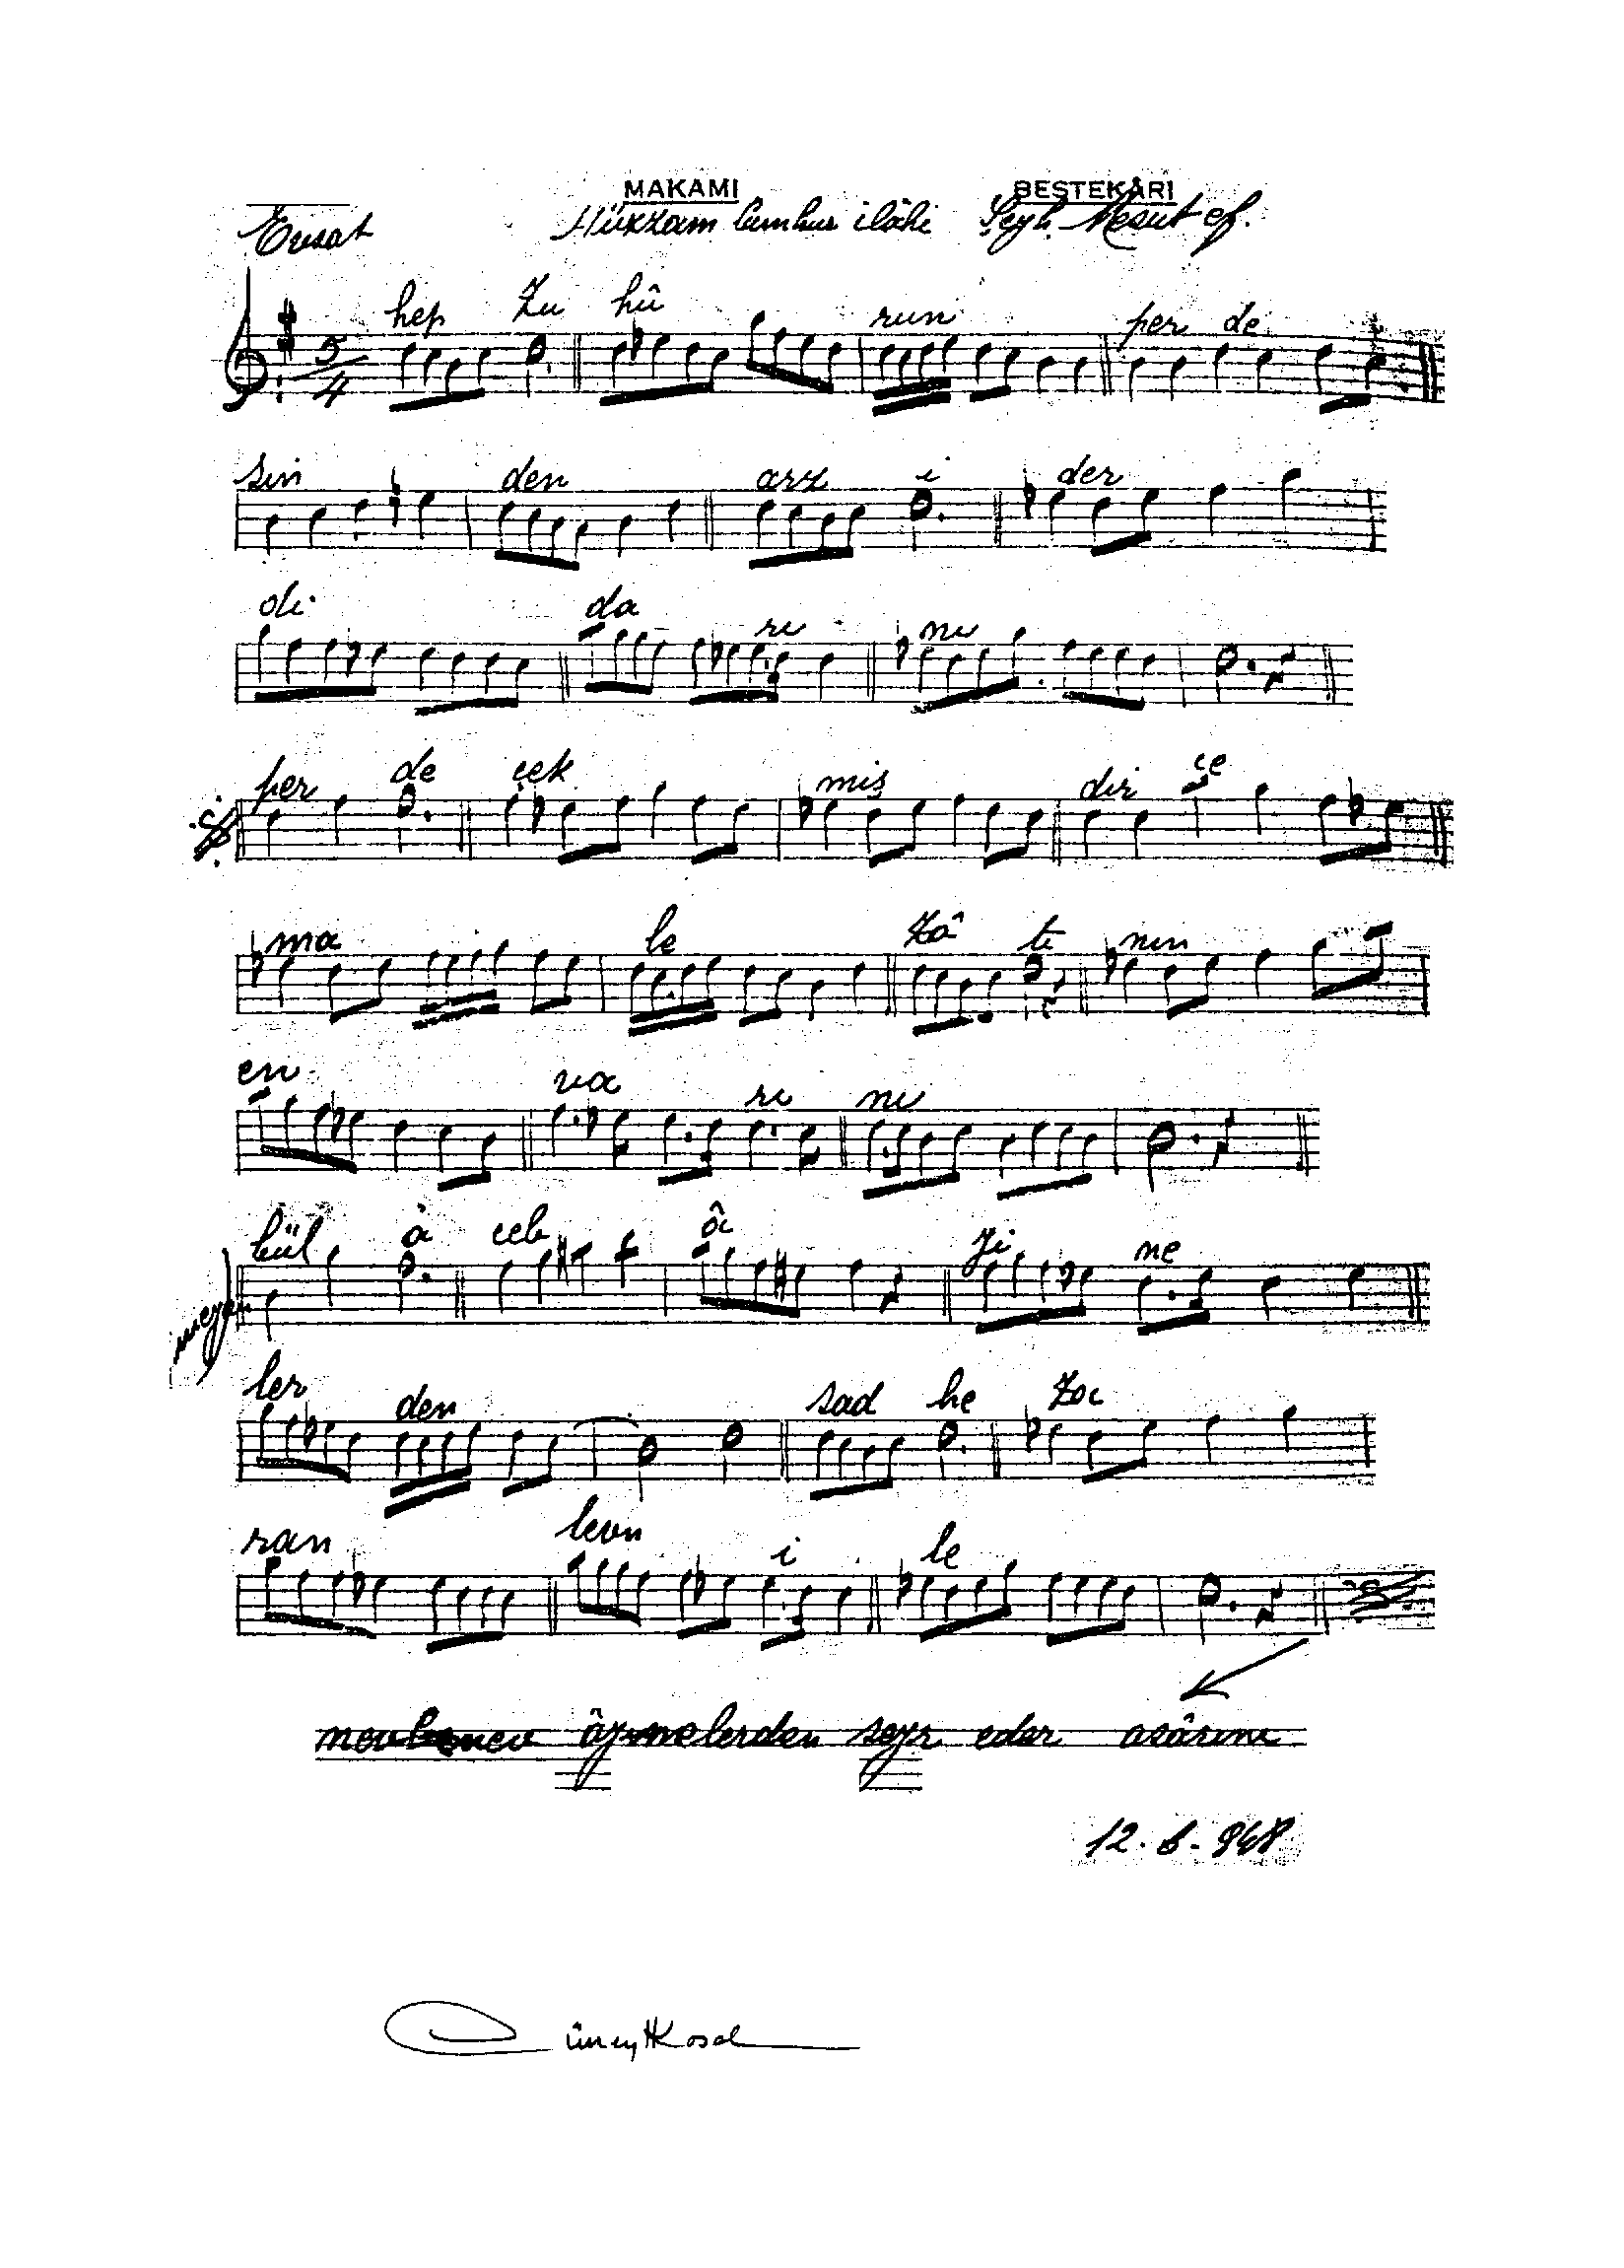 MAKAMI BESTEKÂRI
Evsat Hüzzam cumhur ilâhi Şeyh Mesut ef.
hep Zu hû run per de
5
4
sin den arz i der
di da rı nı
per de çek miş dir ce
ma le Zâ tı nın
en va rı nı
bül a ceb â yi ne
meyan
ler den sad he za
ran levn i le
nev benev âyinelerden seyr eder asârını
12.6.968
Cüneyt Kosal